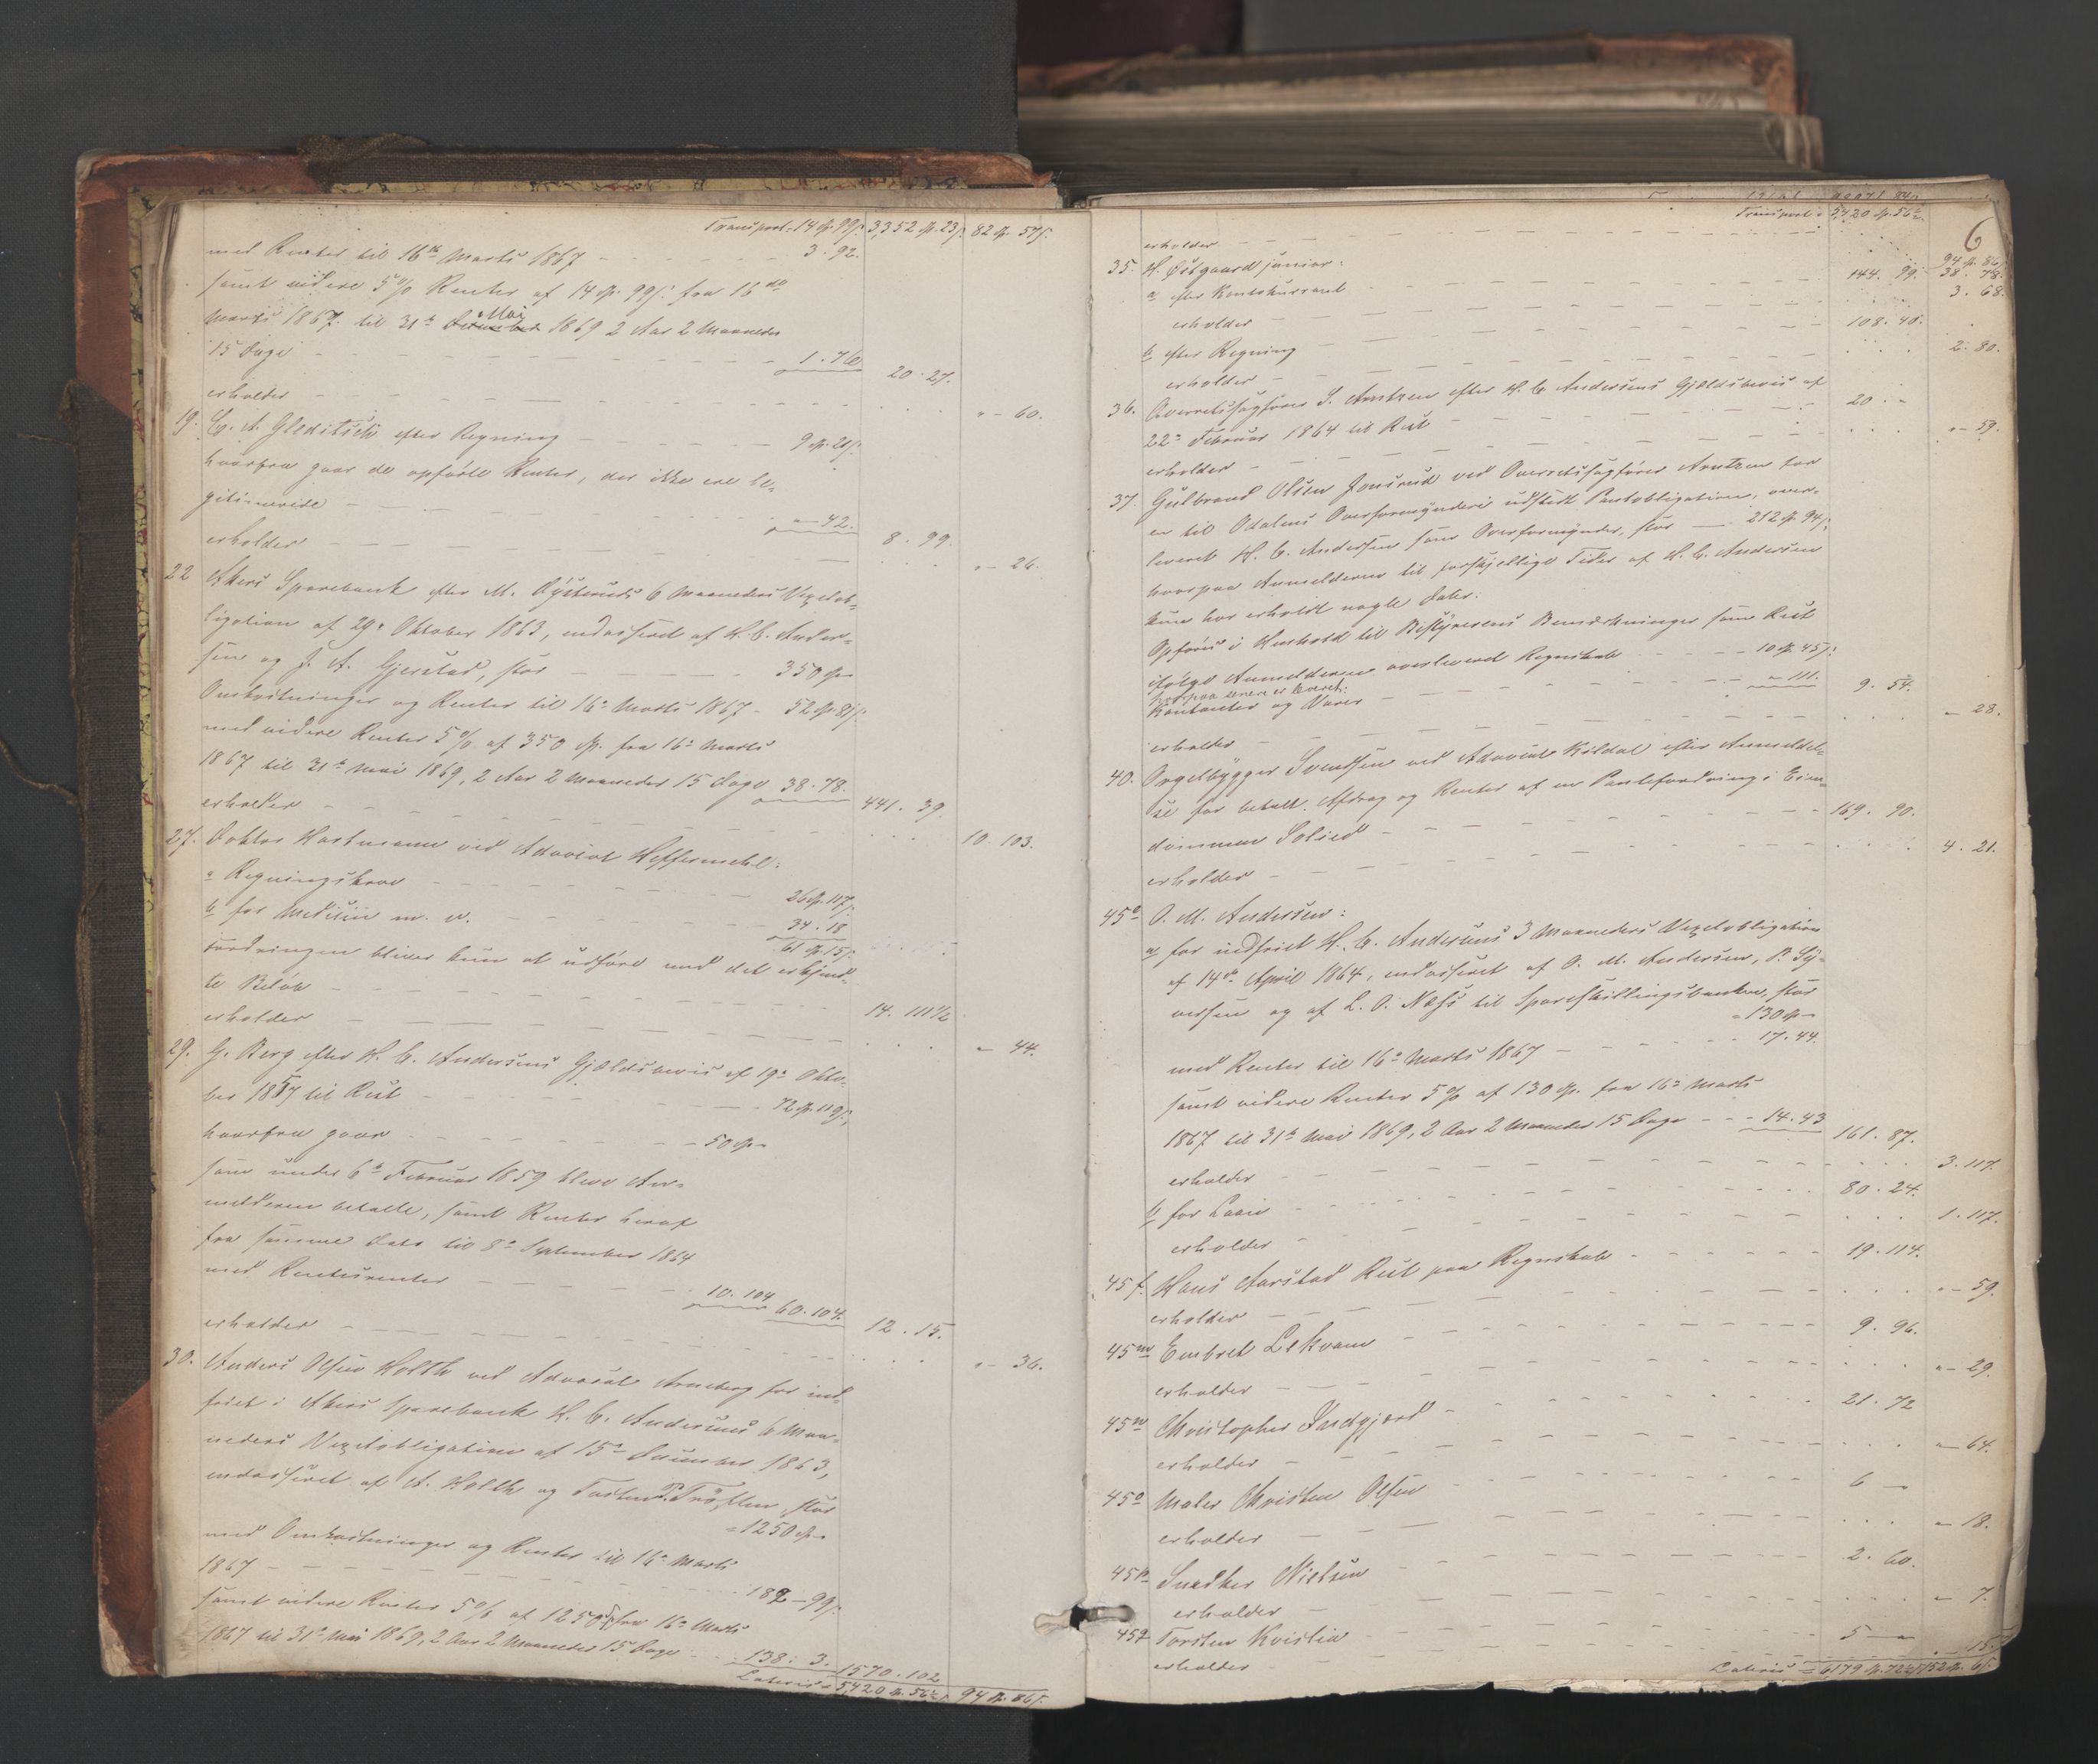 Transport = 14 Sp. 99 s. 3,352 Sp. 23 s. 82 Sp. 57 s.
med Renter til 16de Marts 1867 - - - - - 3. 92.
samt videre 5% Renter af 14 Sp. 99 s. fra 16de
Mai
Marts 1867 til 31te December 1869 2 Aar 2 Maaneder
15 Dage - - - - - 1. 76 20. 27.
erholder - - - - - " - 60.
19. C. A. Gleditsch efter Regning - - - - - 9 Sp. 21 s.
hvorfra gaar de opførte Renter, der ikke ere le-
gitimerede - - - - - " - 42. 8. 99.
erholder - - - - - " - 26.
22 Akers Sparebank efter M. 6 Maaneders Vexelob-
ligation af 29. Oktober 1863, endosseret af H. C. Ander-
sen og J. A. Gjerstad, stor - - - - 350 Sp -
Omkostninger og Renter til 16. Marts 1867 - 52 Sp. 81 s.
med videre Renter 5% af 350 Sp. fra 16. Marts
1867 til 31te Mai 1869, 2 Aar 2 Maaneder 15 Dage 38. 78. 441. 39.
erholder - - - - - 10. 103.
27. Doktor Hartmann ved Advocat Heffermehl:
a Regningskrav - - - - - 26 Sp. 117 s.
b for Medicin m. v. - - - - - 34. 18
61 Sp. 15 s.
Fordringen bliver kun at udføre med det erkjend-
te Beløb - - - - - 14. 111 1/2
erholder - - - - - " - 44.
29. G. Berg efter H. C. Andersens Gjældsbevis af 19. Okto-
ber 1857 til Rest - - - - - 72 Sp. 119 s.
hvorfra gaar - - - - - 50 Sp -
som under 6te Februar 1859 bleve An-
melderen betalte, samt Renter heraf
fra samme Dato til 8. September 1864
med Rentesrenter - - - - 10. 104 60. 104. 12. 15.
erholder - - - - - " - 36.
30. Anders Olsen Holth ved Advocat Arneberg for ind-
friet i Akers Sparebank H. C. Andersens 6 Maa-
neders Vexelobligation af 15. December 1863,
endosseret af A. Holth og Torsten P. stor
= 1250 Sp -
med Omkostninger og Renter til 16. Marts
1867 - - - - - 182 - 99 s.
samt videre Renter 5% af 1250 Sp fra 16. Marts
1867 til 31te Mai 1869, 2 Aar 2 Maaneder 15 Dage - - 138. 3. 1570. 102
Lateris = 5,420 Sp. 56 1/2 s. 94 Sp. 86 s.
6
Transport = 5,420 Sp. 56 1/2 s. 94 Sp. 86 s.
erholder - - - - - 38. 78.
35. H. Østgaard junior:
a efter Kontokurrant - - - - - 144. 99.
erholder - - - - - 3. 68.
b efter Regning - - - - - 108. 48.
erholder - - - - - 2. 80.
36. Overretssagfører I. Arntzen efter H. C. Andersens Gjældsbevis af
22. Februar 1864 til Rest - - - - - 20. -
erholder - - - - - " - 59.
37. Gulbrand Olsen Jonsrud ved Overretssagfører Arntzen for
en til Odalens Overformynderi udstedt Pantobligation, over-
leveret H. C. Andersen som Overformynder, stor - 212 Sp. 94 s.
hvorpaa Anmelderen til forskjellige Tider af H. C. Andersen
kun har erholdt nogle Daler.
Opføres i Henhold til Bestyrerens Bemærkninger som Rest
ifølge Anmelderen overleveret Regnskab - - - - - 10 Sp. 45 s.
hvorpaa senere er leveret:
Kontanter og Varer - - - - - " - 111. 9. 54.
erholder - - - - - " - 28.
40. Orgelbygger Svendsen ved Advocat Kildal efter Anmeldel-
se for betalt Afdrag og Renter af en Pantefordring i Eien-
dommen Sollied - - - - - 169. 90.
erholder - - - - - 4. 21.
45e O. M. Andersen:
a for indfriet H. C. Andersens 3 Maaneders Vexelobligation
af 14de April 1864, endosseret af O. M. Andersen, P. Sy-
versen og af L. O. Næss til Spareskillingsbanken, stor
= 130 Sp -
med Renter til 16. Marts 1867 - - - - - 17. 44.
samt videre Renter 5% af 130 Sp. fra 16. Marts
1867 til 31te Mai 1869, 2 Aar 2 Maaneder 15 Dage - - - 14. 43 161. 87.
erholder - - - - - 3. 117.
b for Laan - - - - - 80. 24.
erholder - - - - - 1. 117.
45 f. Hans Aarstad Rest paa Regnskab - - - - - 19. 114.
erholder - - - - - " - 59.
45m Embret Lekvam - - - - - 9. 96.
erholder - - - - - " - 29.
45n Christopher - - - - - 21. 72
erholder - - - - - " - 64.
45o Maler Christen Olsen - - - - - 6 -
erholder - - - - - " - 18.
45p Snedker Nielsen - - - - - 2. 60.
erholder - - - - - " - 7.
45q Torsten Kvistlia - - - - - 5 - "
erholder - - - - - " - 15.
Lateris = 6179 Sp. 72 1/2 s. 152 Sp. 6 s.